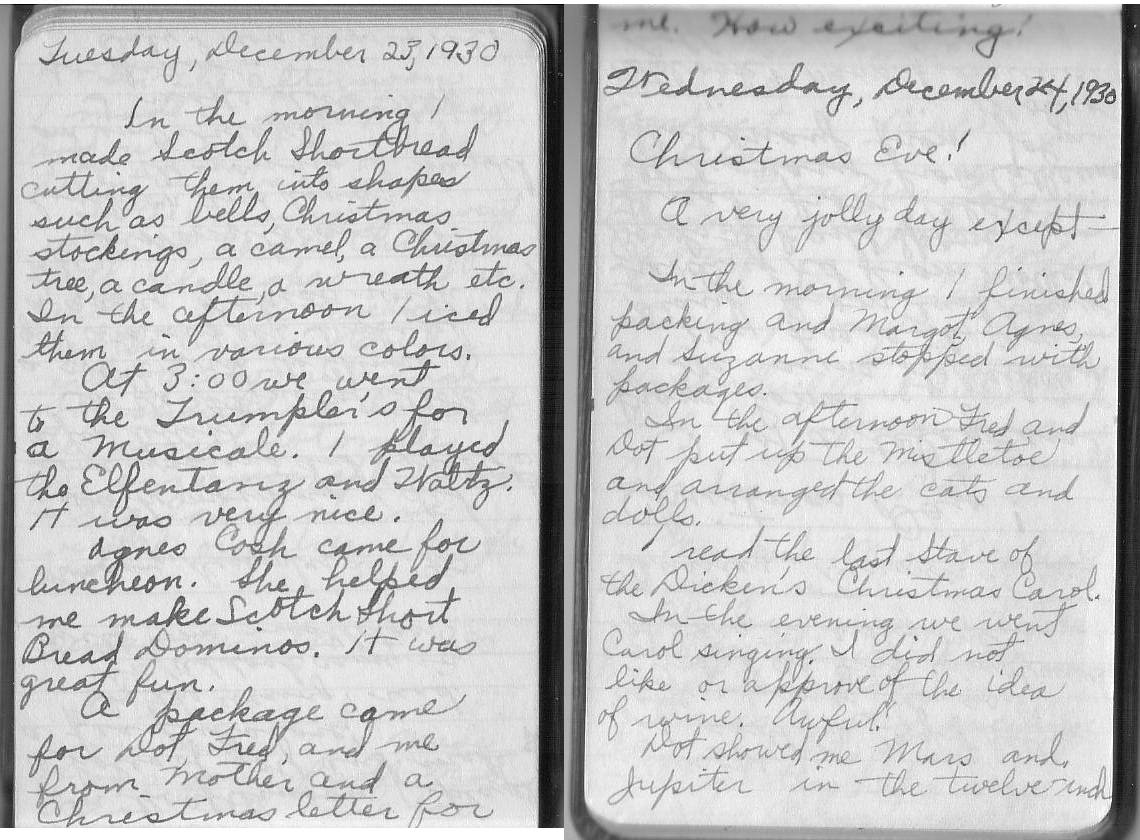 Tuesday, December 23, 1930
In the morning I
made Scotch Shortbread
cutting them into shapes
such as bells, Christmas
stockings, a camel, a Christmas
tree, a candle, a wreath etc.
In the afternoon I iced
them in various colors.
At 3:00 we went
to the Trumpler's for
a Musicale. I played
the Elfentanz and Waltz.
It was very nice.
Agnes Cosh came for
luncheon. She helped
me make Scotch Short
Bread Dominos. It was
great fun.
A package came
for Dot, Fred, and me
from Mother and a
Christmas letter for
me. How exciting!
Wednesday, December 24, 1930
Christmas Eve!
A very jolly day except—
In the morning I finished
packing and Margot, Agnes,
and Suzanne stopped with
packages.
In the afternoon Fred and
Dot put up the Mistletoe
and arranged the cats and
dolls.
I read the last Stave of
the Dicken's Christmas Carol.
In the evening we went
Carol singing. I did not
like or approve of the idea
of wine. Awful!
Dot showed me Mars and
Jupiter in the twelve-inch